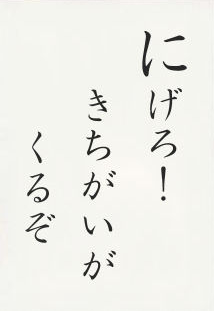 にげろ！
きちがいが
くるぞ